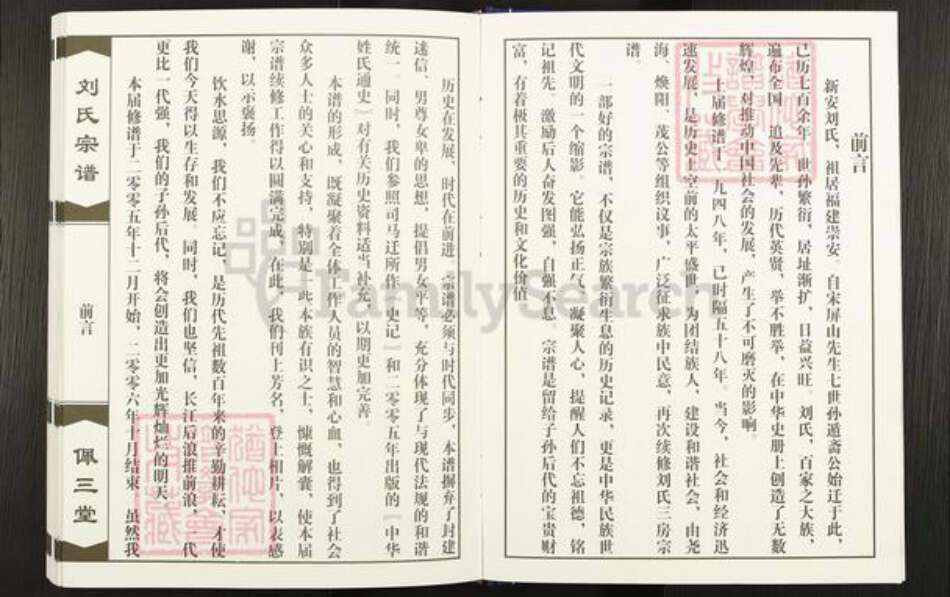 前言
新安刘氏，祖居福建崇安。自宋屏山先生七世孙遁斋公始迁于此，
已历七百余年。世孙繁衍，居址渐扩，日益兴旺。刘氏，百家之大族，
遍布全国。追及先辈，历代英贤，举不胜举，在中华史册上创造了无数
辉煌，对推动中国社会的发展，产生了不可磨灭的影响。
上届修谱于一九四八年，已时隔五十八年。当今，社会和经济迅
速发展，是历史上空前的太平盛世。为团结族人，建设和谐社会，由尧
海、焕阳、茂公等组织议事，广泛征求族中民意，再次续修刘氏三房宗
谱。
一部好的宗谱，不仅是宗族繁衍生息的历史记录，更是中华民族世
代文明的一个缩影。它能弘扬正气，凝聚人心，提醒人们不忘祖德，铭
记祖先。激励后人奋发图强，自强不息。宗谱是留给子孙后代的宝贵财
富，有着极其重要的历史和文化价值。
历史在发展，时代在前进，宗谱必须与时代同步。本谱摒弃了封建
迷信、男尊女卑的思想，提倡男女平等，充分体现了与现代法规的和谐
统一。同时，我们参照司马迁所作《史记》和二零零五年出版的《中华
姓氏通史》对有关历史资料适当补充，以期更加完善。
本谱的形成，既凝聚着全体工作人员的智慧和心血，也得到了社会
众多人士的关心和支持，特别是此本族有识之士，慷慨解囊，使本届
宗谱续修工作得以圆满完成。在此，我们刊上芳名，登上相片，以表感
谢，以示褒扬。
饮水思源，我们不应忘记，是历代先祖数百年来的辛勤耕耘，才使
我们今天得以生存和发展。同时，我们也坚信，长江后浪推前浪，一代
更比一代强，我们的子孙后代，将会创造出更加光辉灿烂的明天。
本届修谱于二零零五年十二月开始，二零零六年十月结束，虽然我
刘氏宗谱
前言
佩三堂
FamilySearch